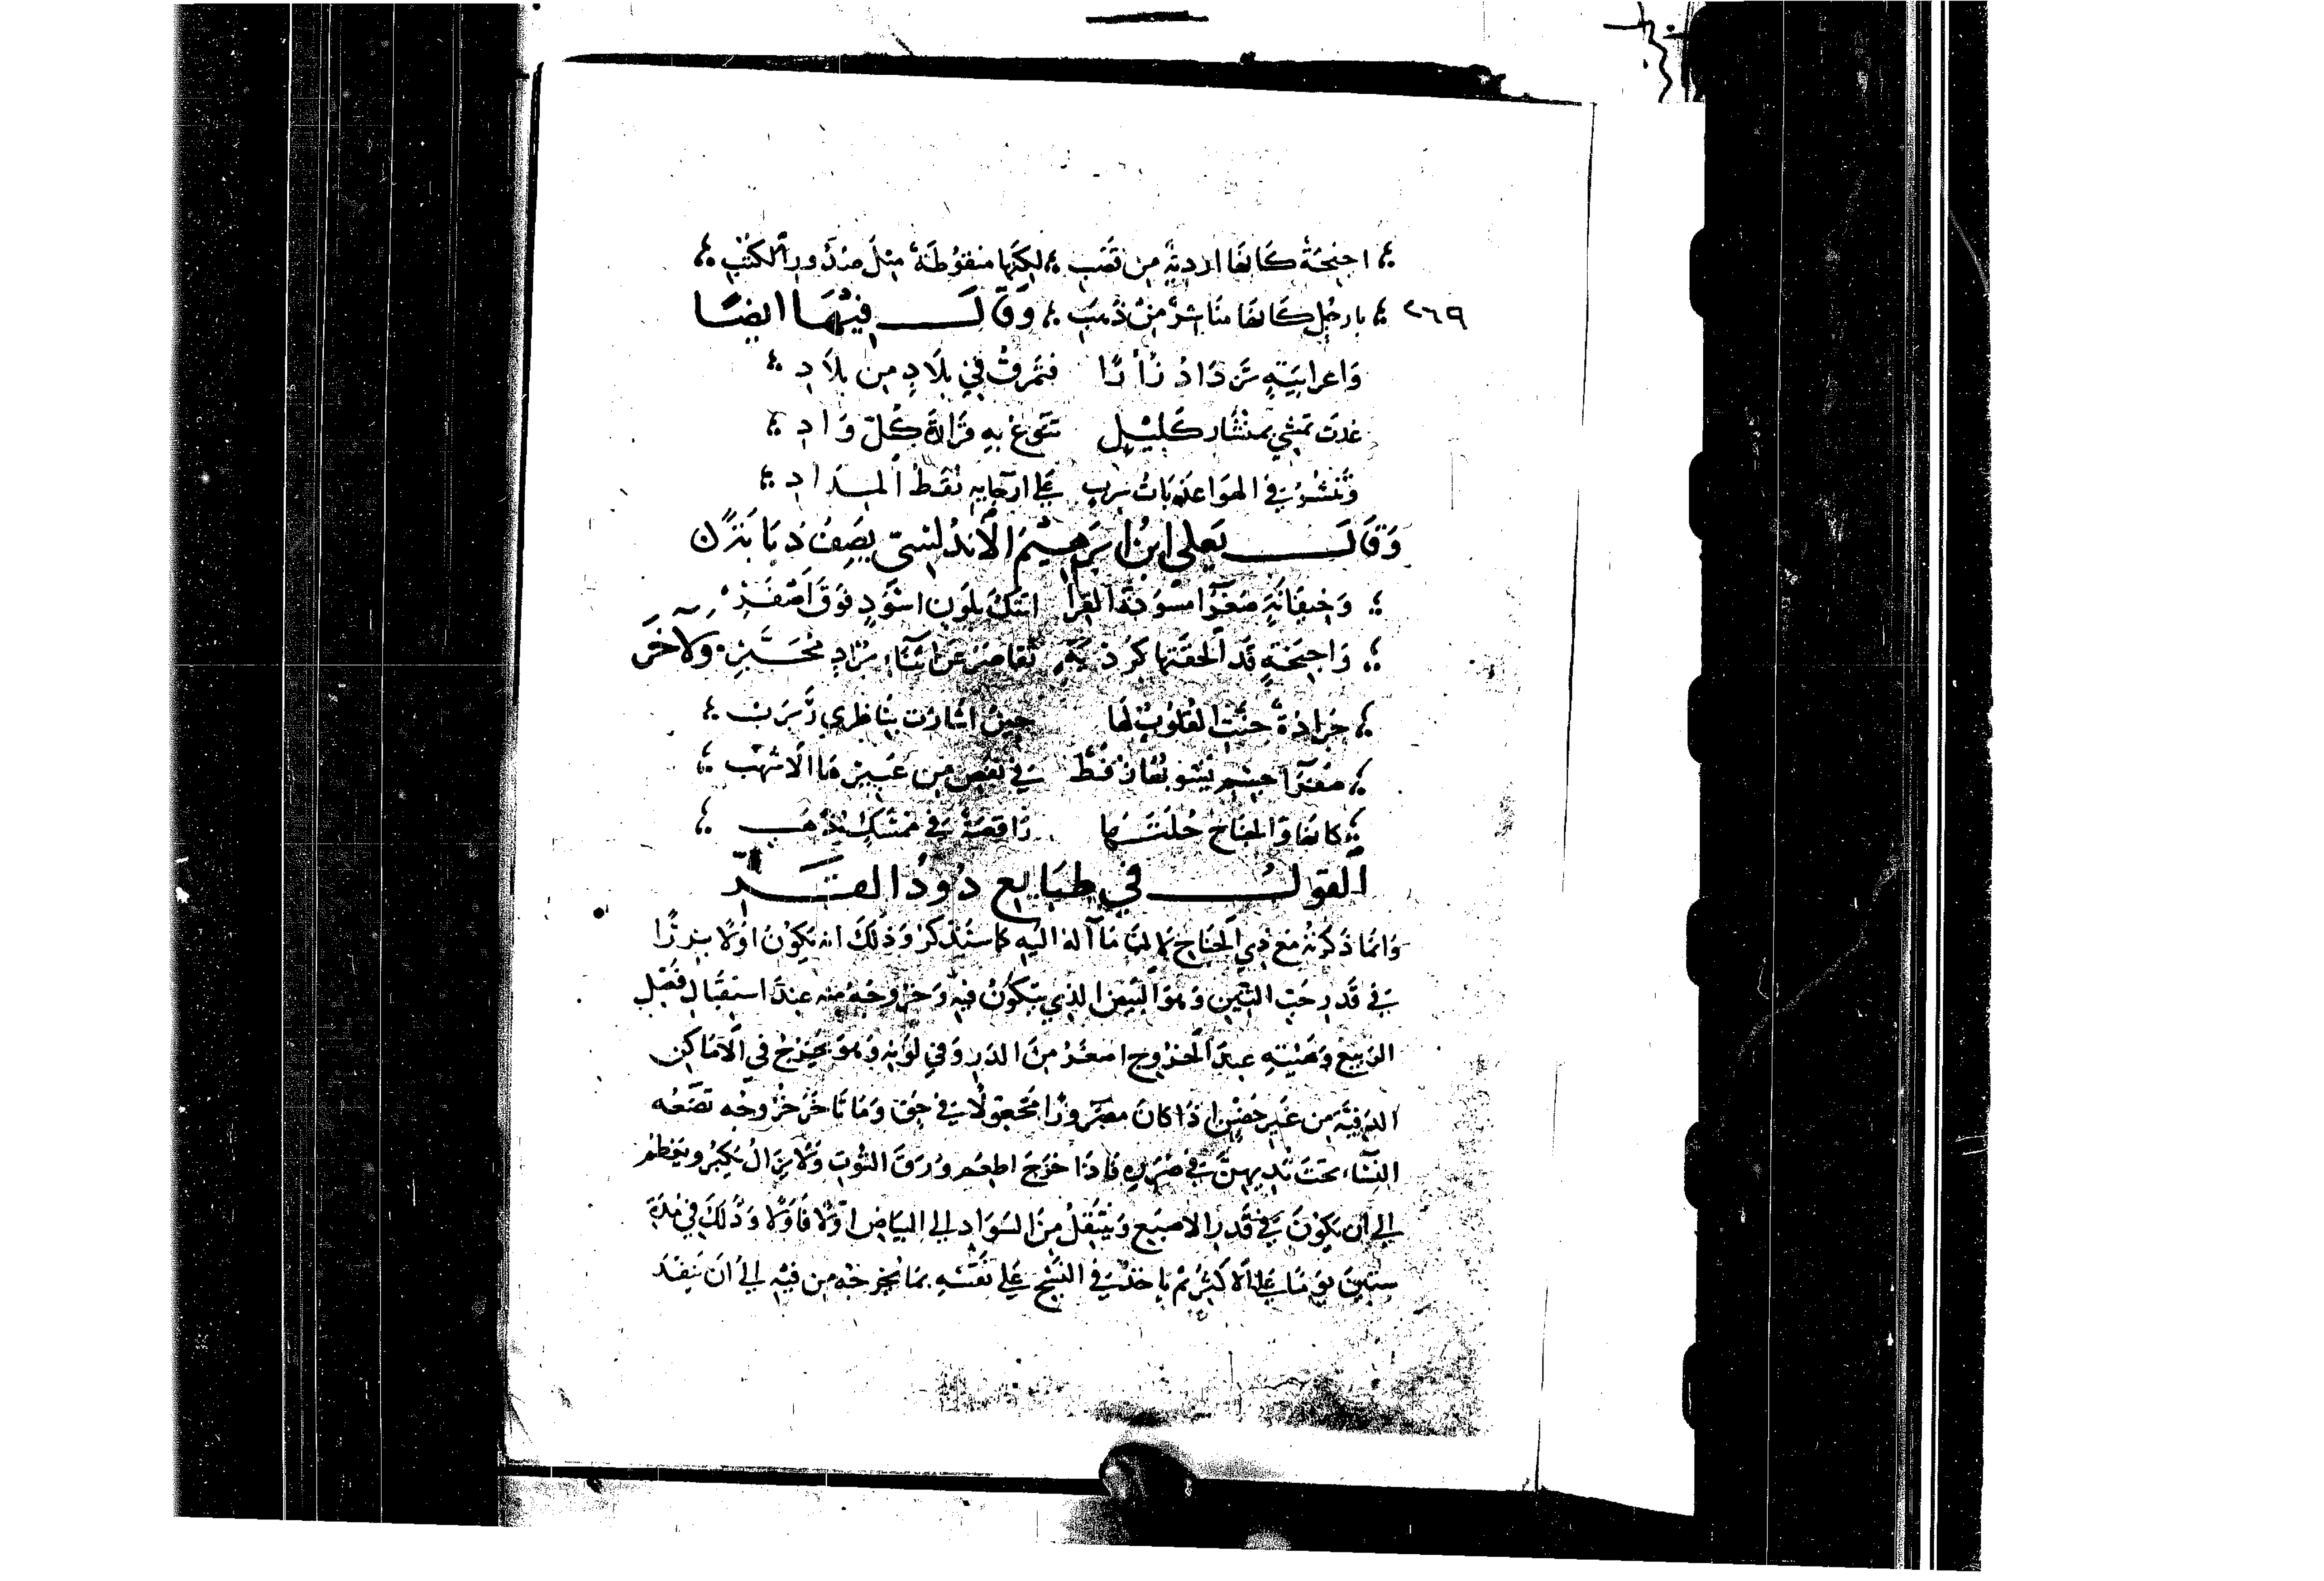 اجنحةٌ كَانهَا ارديةٌ من قَصَب لكنّها منقوُطَة مثلَ صُدُورِ الكتُبِ
٢٦٩ بارجُلٍ كَانهَا منَاشرٌ مِنْ ذَهَب وَقَالَ فيْهَا ايضًا
وَاعرابيَّةٍ تَرتادُ زَادًا فتَمرقُ في بلَادٍ من بلَادِ
غدَت تمشي بمنْشَار كَليْلٍ تَبوّغ به قرَارَة كُلّ وَادِ
وتنشُر في الهوَا عذبَات بُردٍ علي ارجَايهِ نُقَطُ المِدَادِ
وَقَالَ يَعلي ابنُ ابرَهيْمَ الأندلسيّ يَصِفُ
وَخيفَانَةٍ صَفرَا مسوَدّةَ القرَا اتتكَ بلَونٍ اسْوَدٍ فوَقَ أصْفَرِ
وَاجنحَةٍ قَد الحقَتها تقاصَرُ عَن اثنَاء بُرْدٍ مُحَبَّرِ وَلآخَر
جَرادَةٌ حنَّت القلُوبُ لهَا حينَ اشَارَت بنَاظري رَبرَب
صَفرَا جسْمٍ نُقَطٌ في نقشٍ من عَبيرهَا الأشهَب
كانهَا وَالجنَاحُ حُلتُهَا رَاقصَةٌ في مُمَسّكٍ مُذهَب
القولُ في طبَايع دُودِ القَزّ
وَانمَا ذَكَرتُه مَع ذِي الجنَاح لمَا آلهُ اليْهِ كَمَا ستَذكَرُ وَذلكَ انه يَكوُن اوّلًا بزرًا
في قَدر حَبّ التّين وَهوَ البيضُ الذي يتكوّنُ فيه وَخرُوجُه منه عندَ استقبَالِ فَصْلِ
الربيع وَهَيْئتهِ عندَ الخرُوج اصغَرُ منَ الذر وَفي لَونهِ وَهوَ يخرُج في الأمَاكنِ
الدفيّة من غَير حَضْن اذَا كانَ مَصرُورًا مجعُولًا في حُقّ وَمَا تَاخّرَ خُرُوجُه تضَعُه
النّسَاء تحتَ ثديهِنَّ في صُرَرهِ فاذَا خرَجَ اطعم وَرَقَ التوُت وَلا يزَالُ يَكبُر ويَعْظُم
الي ان يَكوُنَ في قَدرِ الاصبَع وَيَنتَقلُ منَ السَوَادِ الي البيَاضِ اوّلًا فَاوّلًا وَذلكَ في مُدّةِ
ستينَ يَومًا علي الاكثر ثم يَاخذُ في النسْج علي نَفْسهِ بمَا يُخرجُه من فيْه الي أن يَنفَدَ